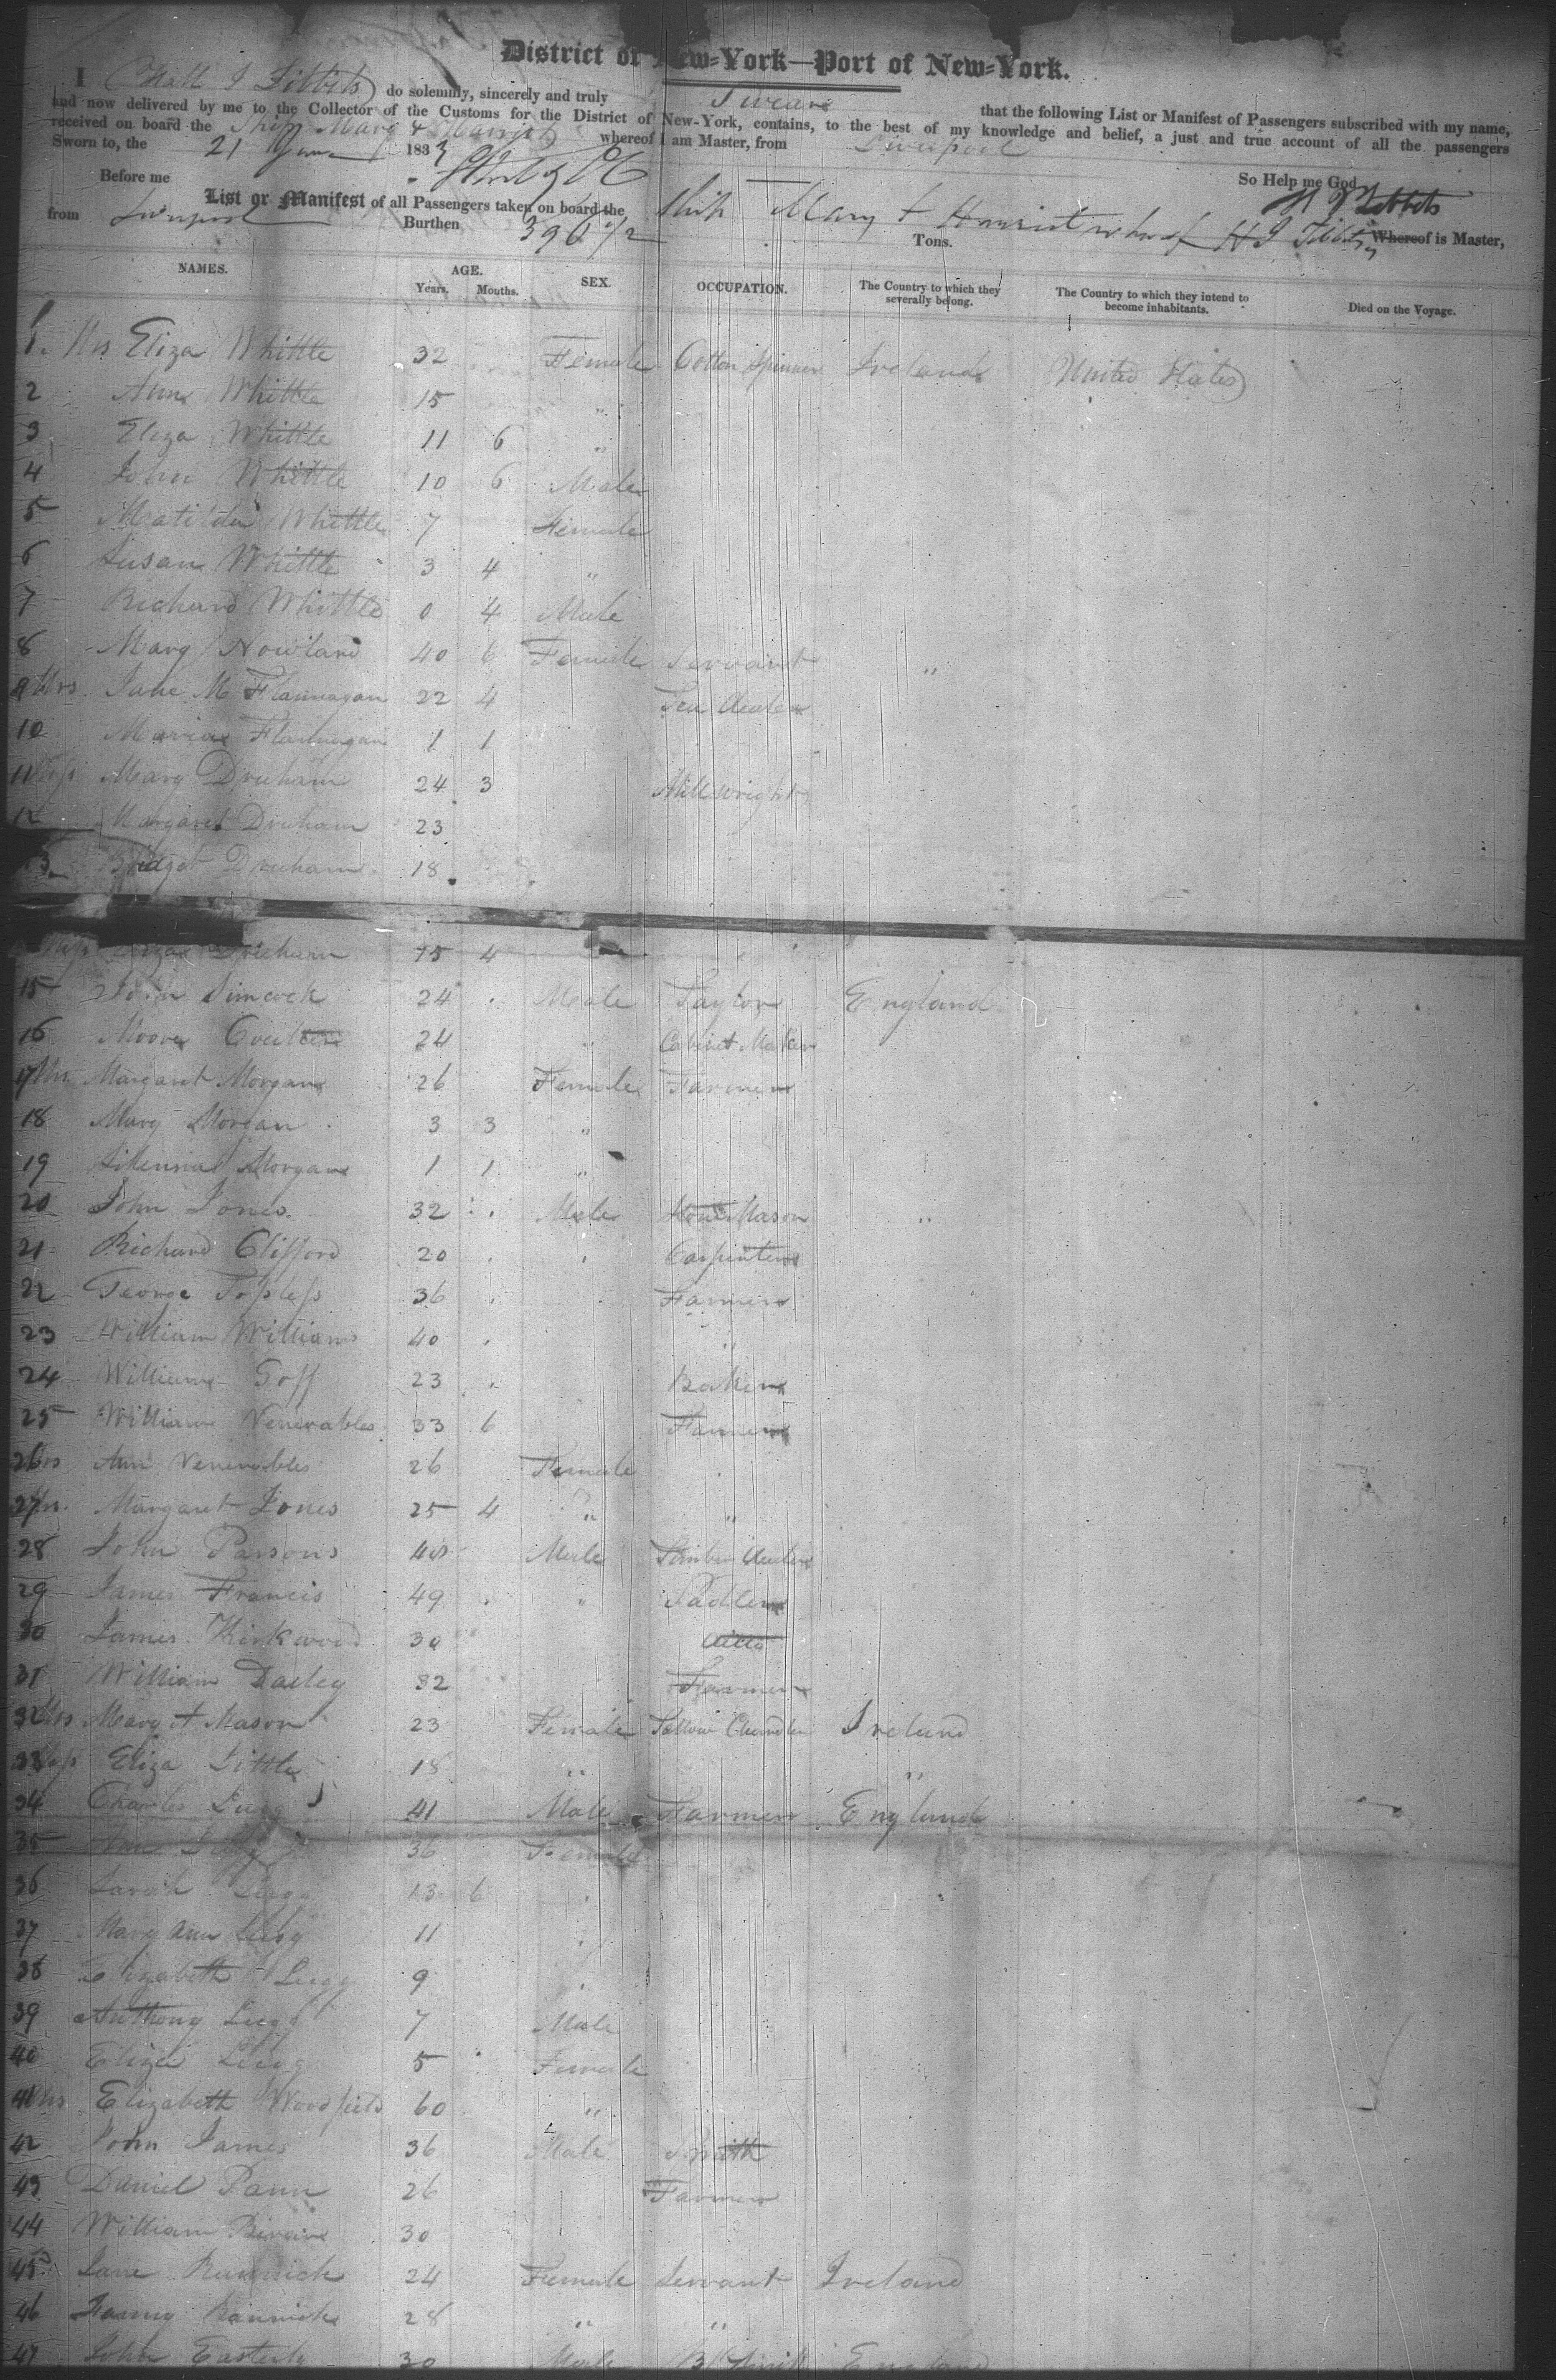 District of New-York—Port of New-York.
I Hall J Tibbits do solemnly, sincerely and truly Swear that the following List or Manifest of Passengers subscribed with my name,
and now delivered by me to the Collector of the Customs for the District of New-York, contains, to the best of my knowledge and belief, a just and true account of all the passengers
received on board the Ship Mary & Harriet whereof I am Master, from Liverpool
Sworn to, the 21 June 1833
Before me So Help me God
H J Tibbits
List or Manifest of all Passengers taken on board the Ship Mary & Harriet whereof H J Tibbits Whereof is Master,
from Liverpool Burthen 396 Tons.
NAMES. AGE. SEX. OCCUPATION. The Country to which they severally belong. The Country to which they intend to become inhabitants. Died on the Voyage.
Years. Months.
1. Mrs Eliza Whittle 32 Female Cotton Spinner Ireland United States
2 Ann Whittle 15 "
3 Eliza Whittle 11 6 "
4 John Whittle 10 6 Male
5 Matilda Whittle 7 Female
6 Susan Whittle 3 4 "
7 Richard Whittle 0 4 Male
8 Mary Nowland 40 6 Female Servant "
9 Mrs. Jane M Flannagan 22 4 Tea Dealer
10 Maria Flannagan 1 1
11 Miss Mary Druham 24 3 Millwright
12 Margaret Druham 23
13 Bridget Druham 18
Miss Eliza Druham 15 4
15 John Simcock 24 Male Taylor England
16 Moore 24 " Cabinet Maker
17 Mrs Margaret Morgan 26 Female Farmer
18 Mary Morgan 3 3 "
19 Morgan 1 1 "
20 John Jones. 32 Male Stone Mason "
21 Richard Clifford 20 Carpenter
22 George Topless 36 Farmer
23 William Williams 40 "
24 William Goff 23 Baker
25 William Venerables 33 6 Farmer
26 Mrs Ann Venerables 26 Female
27 Mrs. Margaret Jones 25 4 " "
28 John Parsons Male Timber Dealer
29 James Francis 49 " Sadler
30 James Kirkwood 30 ditto
31 William Dailey 32 Farmer
32 Mrs Mary A Mason 23 Female Tallow Chandler Ireland
33 Miss Eliza Little 18 " "
34 Charles Lugg 41 Male Farmer England
35 Ann Lugg 36 Female
36 Sarah Lugg 13 6
37 Mary Ann Lugg 11
38 Elizabeth Lugg 9
39 Anthony Lugg 7 Male
40 Eliza Lugg 5 Female
41 Mrs Elizabeth Woodfield 60 "
42 John James 36 Male Smith
43 Daniel Pann 26 Farmer
44 William 30
45 Jane Rannick 24 Female Servant Ireland
46 Fanny Rannick 28 " "
47 John Easterly 30 Male Bl Smith England